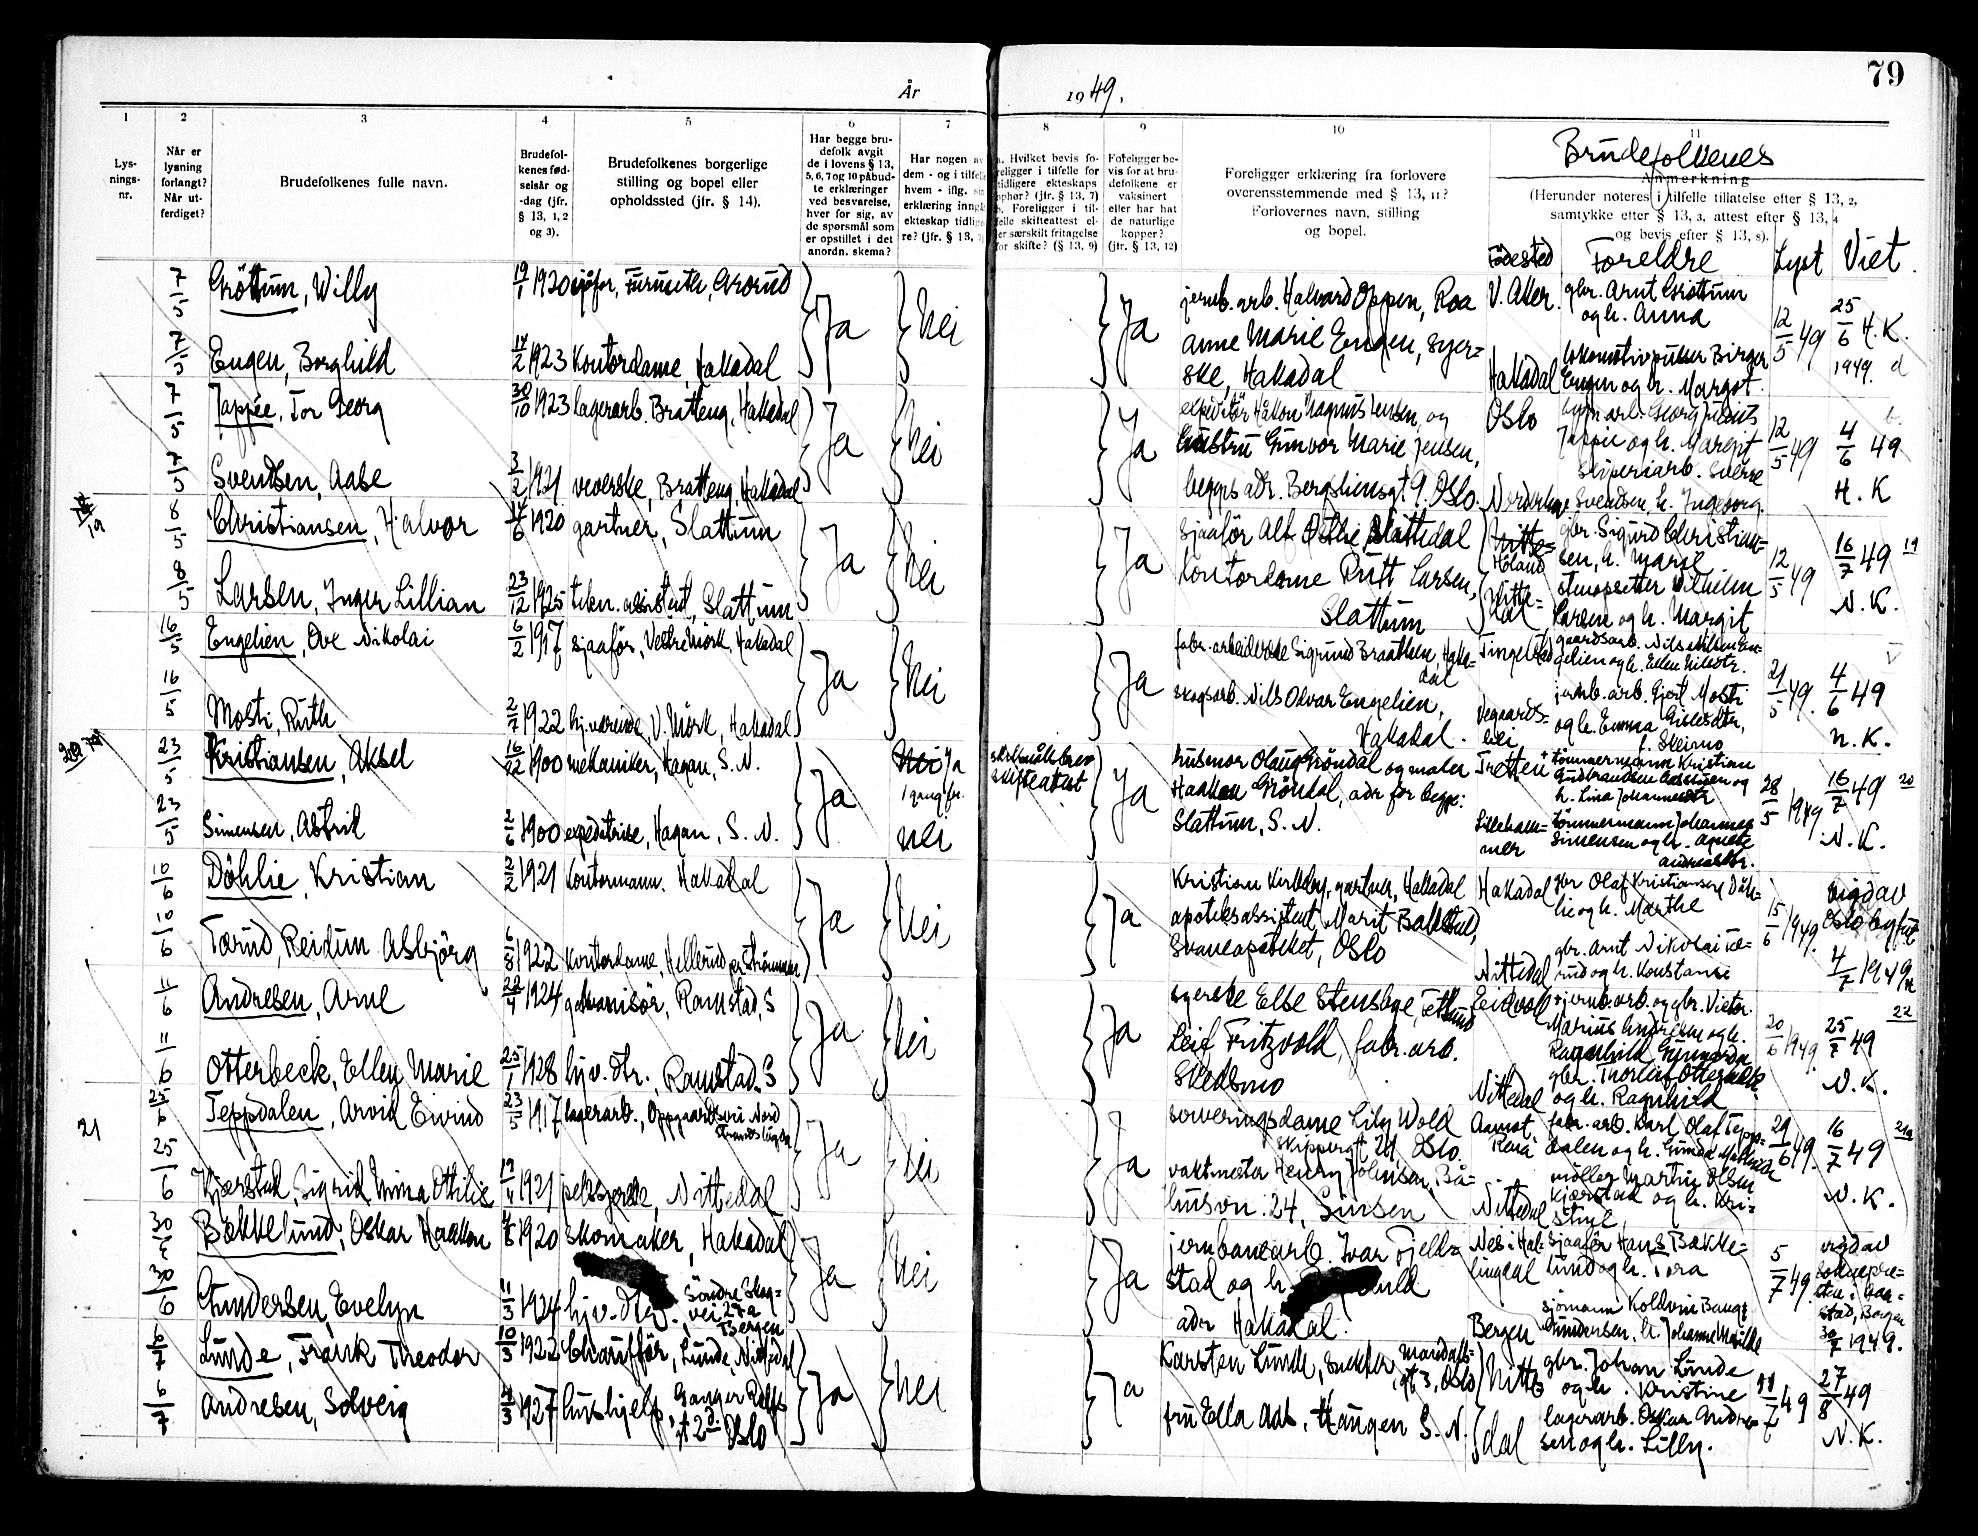 79
År 1949.
1 2 3 4 5 6 7 8 9 10 11
Lys-
nings-
nr.
Når er
lysning
forlangt?
Når ut-
ferdiget?
Brudefolkenes fulle navn.
Brudefol-
kenes fød-
selsår og
-dag (jfr.
§ 13, 1, 2
og 3).
Brudefolkenes borgerlige
stilling og bopel eller
opholdssted (jfr. § 14).
Har begge bru-
defolk avgit
de i lovens § 13,
5, 6, 7 og 10 påbud-
te erklæringer
ved besvarelse,
hver for sig, av
de spørsmål som
er opstillet i det
anordn. skema?
Har nogen av
dem - og i tilfelle
hvem - iflg. sin
erklæring inngått
ekteskap tidlige-
re? (jfr. § 13, 7)
a. Hvilket bevis fo-
religger i tilfelle for
tidligere ekteskaps
ophør? (jfr. § 13, 7)
b. Foreligger i til-
felle skifteattest el-
ler særskilt fritagelse
for skifte? (§ 13, 9)
Foreligger be-
vis for at bru-
defolkene er
vaksinert
eller har hat
de naturlige
kopper?
(jfr. § 13, 12)
Foreligger erklæring fra forlovere
overensstemmende med § 13, 11?
Forlovernes navn, stilling
og bopel.
Brudefolkenes
Anmerkning
(Herunder noteres i tilfelle tillatelse efter § 13, 2,
samtykke efter § 13, 3, attest efter § 13, 4
og bevis efter § 13, 8).
Fødested Foreldre Lyst Viet.
7/5 Gröttum, Willy 19/1 1920 sjåfør, Furuseth, Grorud Ja Nei Ja jernb.arb. Halvard Oppen, Roa V. Aker. gbr. Arnt Gröttum
og h. Anna 12/5 49 25/6 H.K.
1949.
anne Marie Engen, syer-
ske, Hakadal
7/5 Engen, Borghild 17/2 1923 Kontordame, Hakadal Hakadal lokomotivpusser Birger
Engen og h. Margot.
7/5 Jappée, Tor Georg 30/10 1923 lagerarb. Bratteng, Hakadal Ja Nei Ja expeditör Håkon Magnus Jensen, og
hustru Gunvor Marie Jensen,
begges adr. Bergsliensgt 9. Oslo. Oslo Georg Julius
Jappée og h. Margit 12/5 49 4/6 49
H. K
7/5 Svendsen, Aase 3/2 1921 veverske, Bratteng, Hakadal sliperiarb. Sverre
Svendsen, h. Ingeborg.
19 8/5 Christiansen, Halvor 14/6 1920 gartner, Slattum Ja Nei Ja sjaaför Alf Slattum
Höland gbr. Sigurd Christian-
sen, h. Marie 12/5 49 16/7 49 19
N.K.
8/5 Larsen, Inger Lillian 23/12 1925 tekn. assistent, Slattum Kontordame Rutt Larsen,
Slattum Nitte-
dal Wilhelm
Larsen og h. Margit
16/5 Engelien, Ove Nikolai 6/2 1917 sjaaför, Vestre Mörk, Hakadal Ja Nei Ja fabr. arbeiderske Sigrund Braathen, Haka-
dal Tingelstad gaardsarb. Nils Nilsen En-
gelien og h. Ellen 21/5 49. 4/6 49
N.K.
skogsarb. Nils Olvar Engelien,
Hakadal.
16/5 Mosti, Ruth 2/7 1922 hj.værende, V. Mörk, Hakadal Vegaards-
hei jernb. arb. Gjert Mosti
og h. Emma
20 23/5 Kristiansen, Aksel 16/12 1900 mekaniker, Hagan, S. N. Ja Nei Ja
1 gang før skilsmissebrev
skifteattest Ja husmor Olaug Gröndal og maler
Haakon Gröndal, adr for begge:
Slattum, S. N. Tretten tömmermann Kristian
Gudbrandsen og
h. Lina Johannesdtr 28/5 1949 16/7 49 20
N.K.
23/5 Simensen, Astrid 2/6 1900 expeditrise, Hagan, S. N. nei Lilleham-
mer tömmermann Johannes
Simensen og h. Agnethe
Andreasdtr.
10/6 Döhlie, Kristian 2/2 1921 Kontormann. Hakadal Ja Nei Ja Kristian Kirkeby, gartner, Hakadal Hakadal gbr Olaf Kristiansen Döh-
lie og h. Marthe 15/6 1949. vigd av
Oslo byfut
4/7 1949
apoteksassistent Marit Bakstad,
Svaneapoteket, Oslo
10/6 Tærud, Reidun Asbjörg 6/8 1922 Kontordame, Hellerud pr Strömmen Nittedal gbr. Arnt Nikolai Tæ-
rud og h. Konstanse
11/6 Andresen, Arne 22/4 1924 galvanisör, Ramstad, S Ja Nei Ja syerske Else Stensbye, Fetsund
Leif Fritzvold, fabr. arb.
Skedsmo Eidsvoll jernb.arb. og gbr. Victor
Marius Andresen og h.
Ragnhild 20/6 1949. 25/7 49 22
N.K.
11/6 Otterbeck, Ellen Marie 25/1 1928 hjv. dtr., Ramstad, S Nittedal gbr. Thorleif Otterbeck
og h. Ragnhild
21 25/6 Teppdalen, Arvid Eivind 23/5 1917 lagerarb., Nord
Ja Nei Ja serveringsdame Lily Wold
Skippergt 21, Oslo. Aamot,
Rena fabr. arb. Karl Olaf Tepp-
dalen og h. Gunda Mathilda 29/6 49. 16/7 49 21a
N.K.
25/6 Kjærstad, Sigrid Minna Othilie 19/4 1921 pelssyerske, Nittedal vaktmester Henry Johansen, Bå-
husvn. 24, Sinsen Nittedal möller Martin Olsen
Kjærstad og h. Kri-
stine
30/6 Bækkelund, Oskar Haakon 4/8 1920 skomaker, Hakadal Ja Nei Ja jernbanearb. Ivar Fjell-
stad og h.
adr Hakadal. Nes i Hal-
lingdal sjaaför Hans Bække-
lund og h. Tora 5/7 49. vigd av
sokneprest
i
Bergen
30/7 1949.
30/6 Gundersen, Evelyn 11/3 1924 hjv. dtr. Söndre Skog-
vei 29a
Bergen Bergen sjömann Koldvin Bauge
Gundersen, h. Johanne Mathilde
6/7 Lunde, Frank Theodor 10/3 1922 Chaufför, Lunde, Nittedal Ja Nei Ja Karsten Lunde, snekker, Mandals-
gt 3, Oslo Nitte-
dal gbr. Johan Lunde
og h. Kristine 11/7 49 27/8 49
N.K.
6/7 Andresen, Solveig 4/3 1927 hushjelp, Ganger Rolfs
gt 2d. Oslo fru Ella Aas, Haugen S. N. lagerarb. Oskar Andre-
sen og h. Lilly.